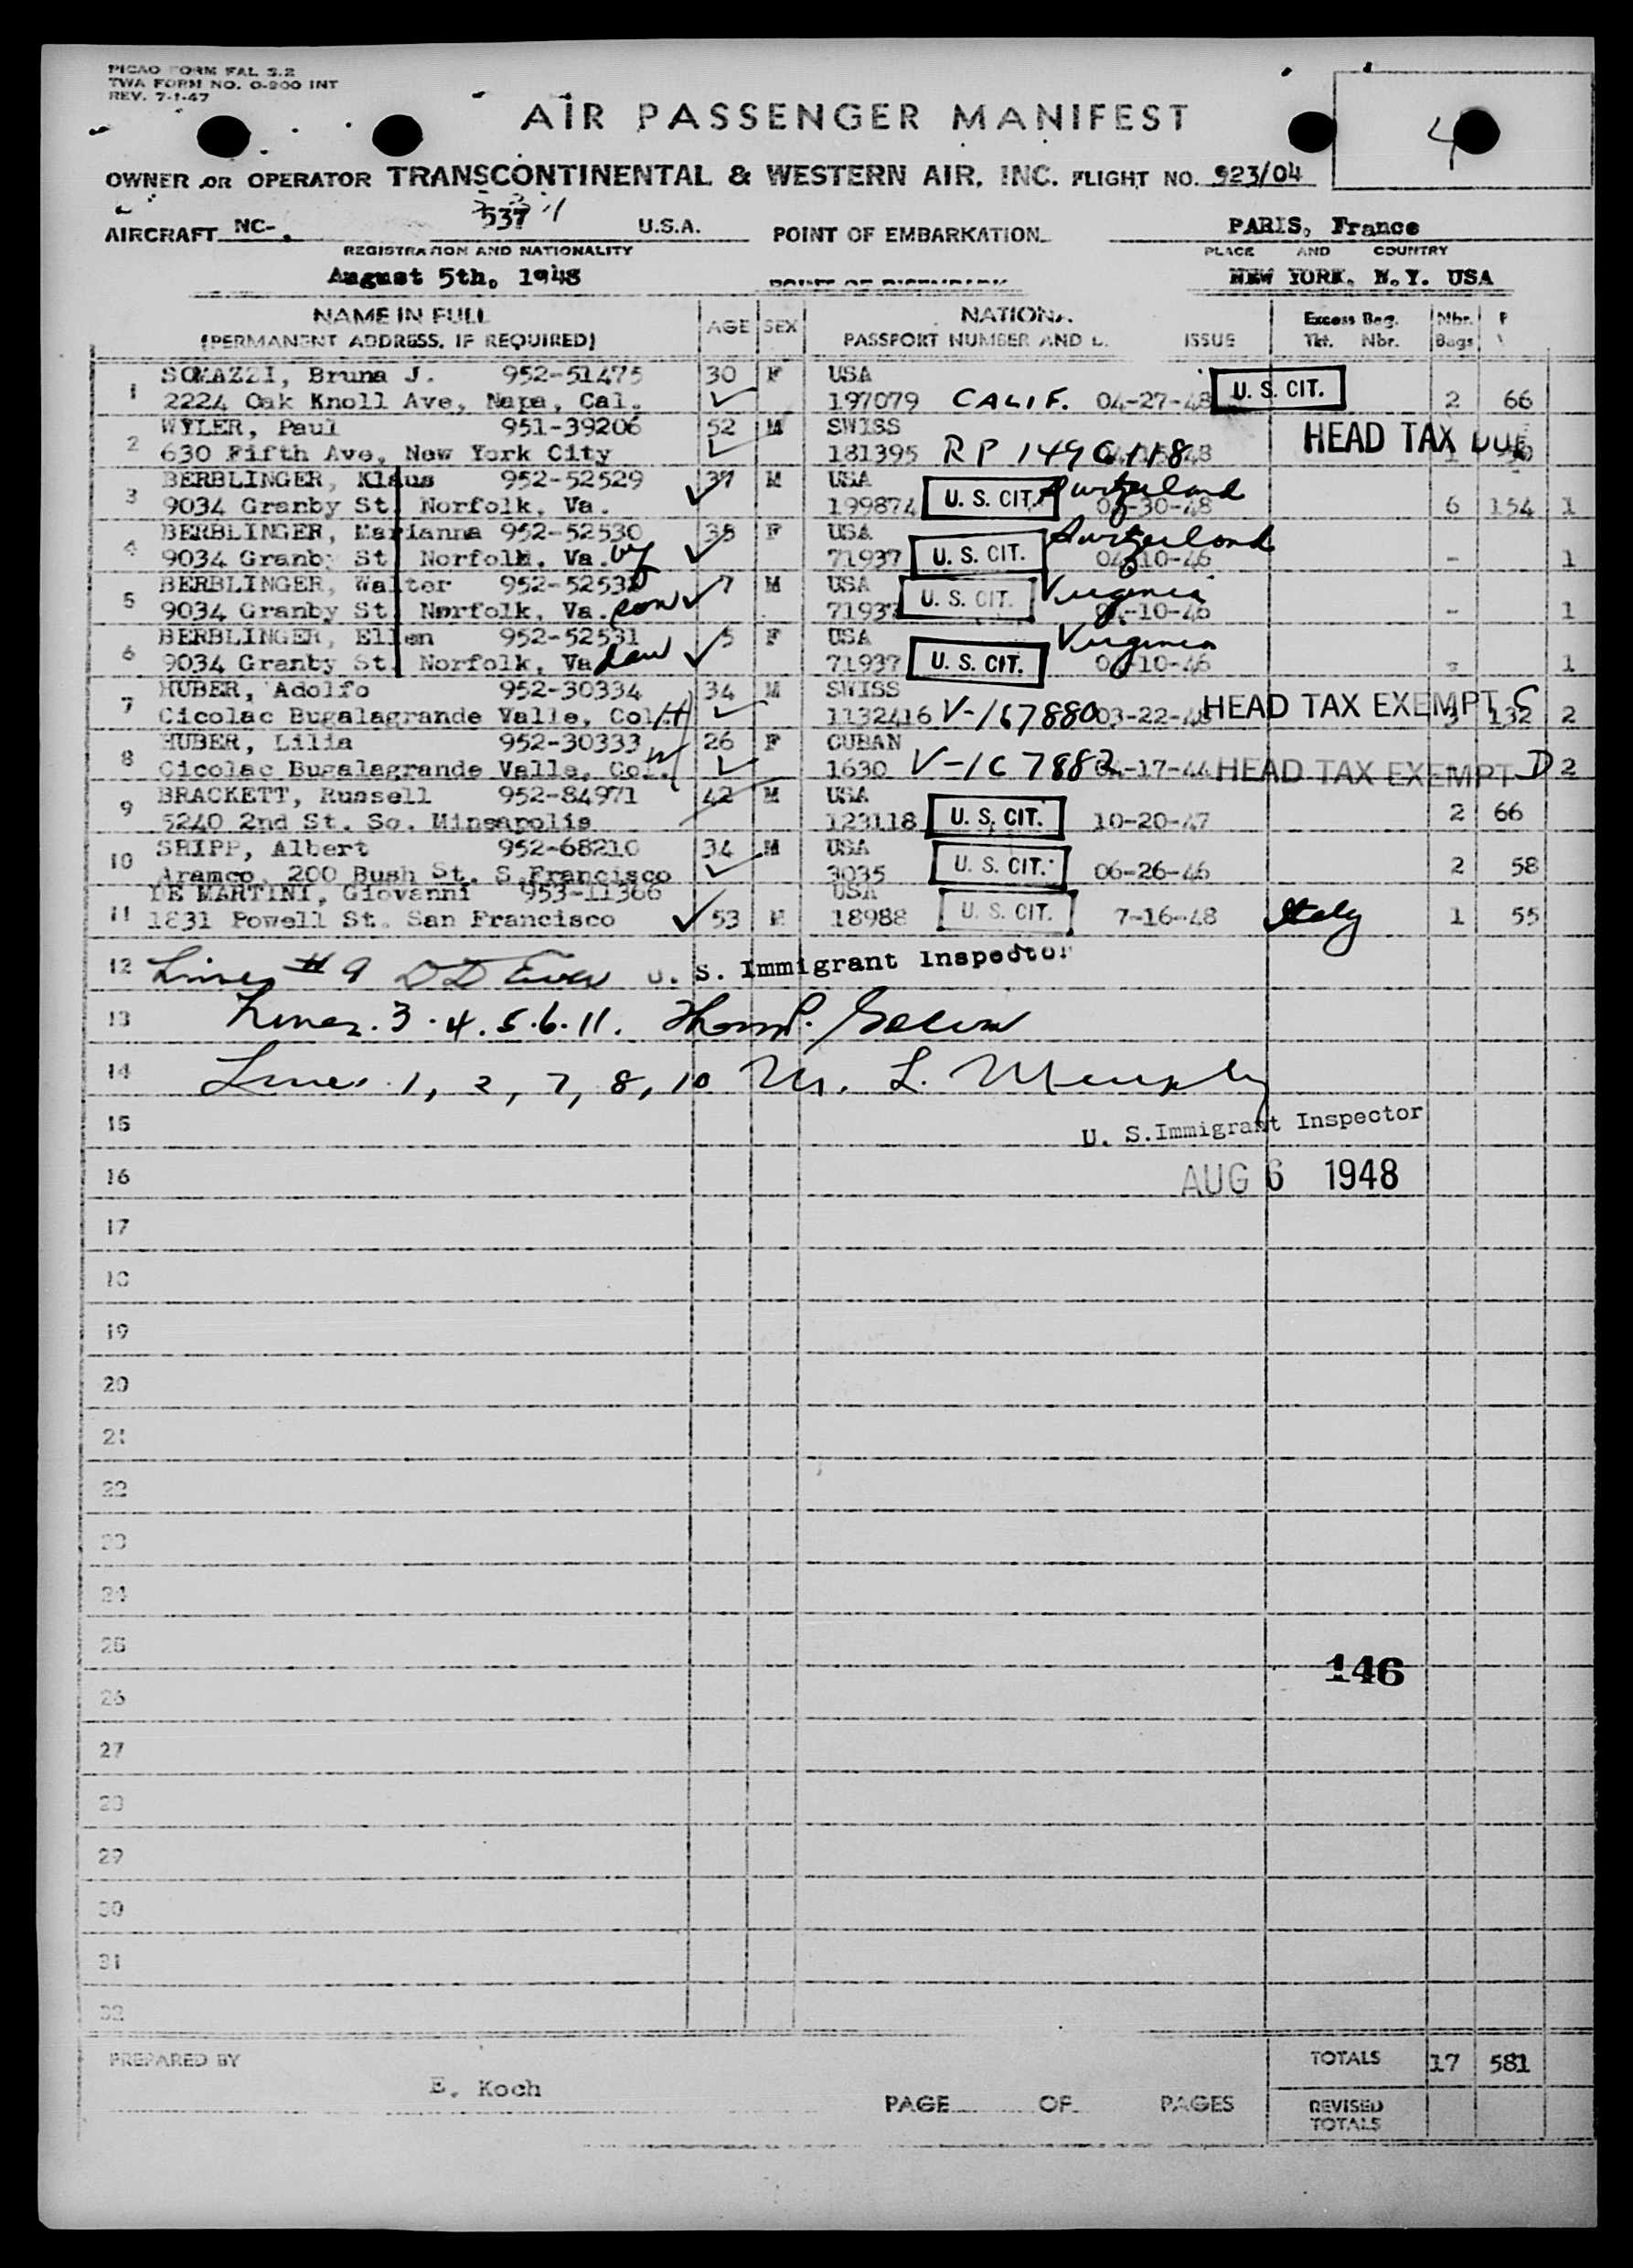 PICAO FORM FAL 3.2
TWA FORM NO. O-200 INT
REV. 7-1-47
AIR PASSENGER MANIFEST
4
OWNER OR OPERATOR TRANSCONTINENTAL & WESTERN AIR, INC. FLIGHT NO. 923/04
AIRCRAFT NC- 537 U.S.A. POINT OF EMBARKATION PARIS, France
REGISTRATION AND NATIONALITY PLACE AND COUNTRY
August 5th, 1948 NEW YORK, N.Y. USA
NAME IN FULL AGE SEX Excess Bag. Nbr.
(PERMANENT ADDRESS, IF REQUIRED) PASSPORT NUMBER AND ISSUE Tkt. Nbr. Bags
1 SOMAZZI, Bruna J. 952-51475 30 F USA U. S. CIT.
2224 Oak Knoll Ave, Napa, Cal. 197079 CALIF. 04-27-48 2 66
2 WYLER, Paul 951-39206 52 M SWISS HEAD TAX DUE
630 Fifth Ave, New York City 181395 RP
3 BERBLINGER, Klaus 952-52529 37 M USA Switzerland
9034 Granby St. Norfolk, Va. 199874 U. S. CIT. -30-48 6 154 1
4 BERBLINGER, Marianna 952-52530 38 F USA Switzerland
9034 Granby St. Norfolk, Va. 71937 U. S. CIT. 10-46 - 1
5 BERBLINGER, Walter 7 M USA Virginia
9034 Granby St. Norfolk, Va. son 71937 U. S. CIT. -10-46 - 1
6 BERBLINGER, Ellen 952-52531 5 F USA Virginia
9034 Granby St. Norfolk, Va dau 71937 U. S. CIT. -10-46 1
7 HUBER, Adolfo 952-30334 34 M SWISS HEAD TAX EXEMPT C
Cicolac Bugalagrande Valle, Col. H 1132416 V-167880 03-22-48 3 132 2
8 HUBER, Lilia 952-30333 W 26 F CUBAN HEAD TAX EXEMPT D
Cicolac Bugalagrande Valle, Col. 1630 V-167882 -17-44 2
9 BRACKETT, Russell 952-84971 42 M USA
5240 2nd St. So. Mineapolis 123118 U. S. CIT. 10-20-47 2 66
10 SHIPP, Albert 952-68210 34 M USA
Aramco, 200 Bush St. S.Francisco 3035 U. S. CIT. 06-26-46 2 58
11 DE MARTINI, Giovanni 953-11366 USA
1831 Powell St. San Francisco 53 M 18988 U. S. CIT. 7-16-48 Italy 1 55
12 Lines # 9 U. S. Immigrant Inspector
13 Lines. 3. 4. 5. 6. 11.
14 Lines 1, 2, 7, 8, 10 M. L. Murphy
15 U. S. Immigrant Inspector
16 AUG 6 1948
17
18
19
20
21
22
23
24
25
146
26
27
28
29
30
31
32
PREPARED BY TOTALS 17 581
E. Koch
PAGE OF PAGES REVISED
TOTALS